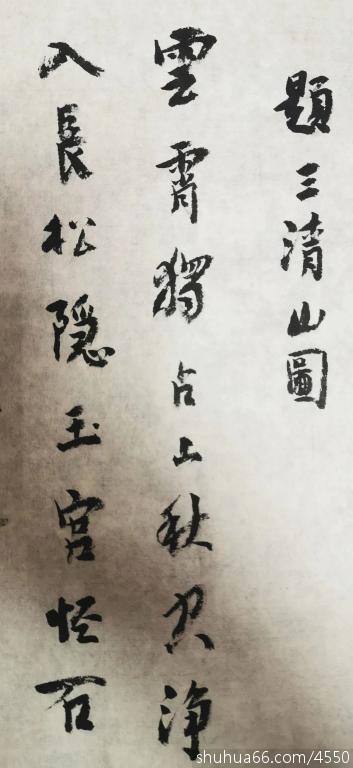 題三清山圖
雲霄獨占上秋
淨
入長松隱玉宮怪石
shuhua66.com/4550